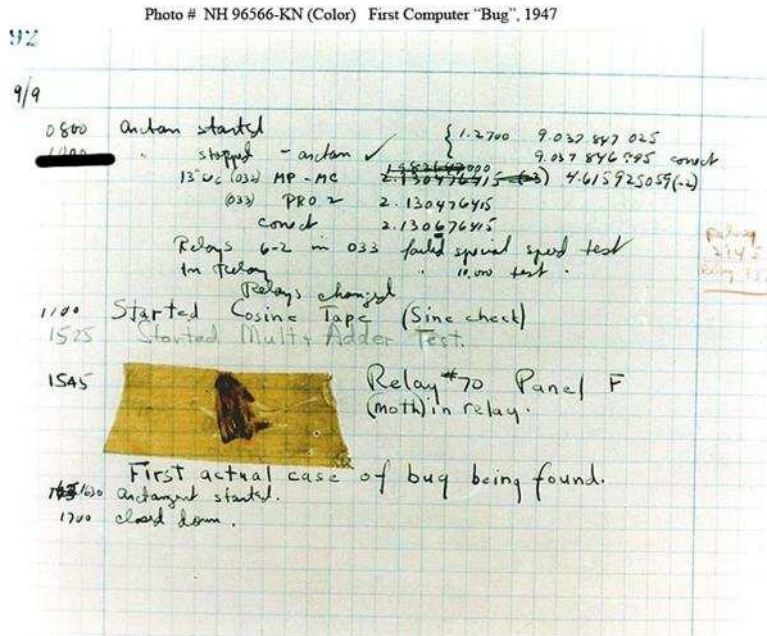 Photo # NH 96566-KN (Color) First Computer “Bug”, 1947
92
9/9
0800 antan started
" stopped - antan ✓
{ 1.2700 9.037 847 025
9.037 846 995 conect
13"uc (032) MP - MC 2.130476415 (-3) 4.615925059(-2)
(033) PRO 2 2.130476415
conect 2.130676415
Relays 6-2 in 033 failed special speed test
In Relay " 10,000 test .
Relays changed
1100 Started Cosine Tape (Sine check)
1525 Started Mult + Adder Test.
1545 Relay #70 Panel F
(moth) in relay.
First actual case of bug being found.
1630 antangent started.
1700 closed down.
Relay
2145
Relay